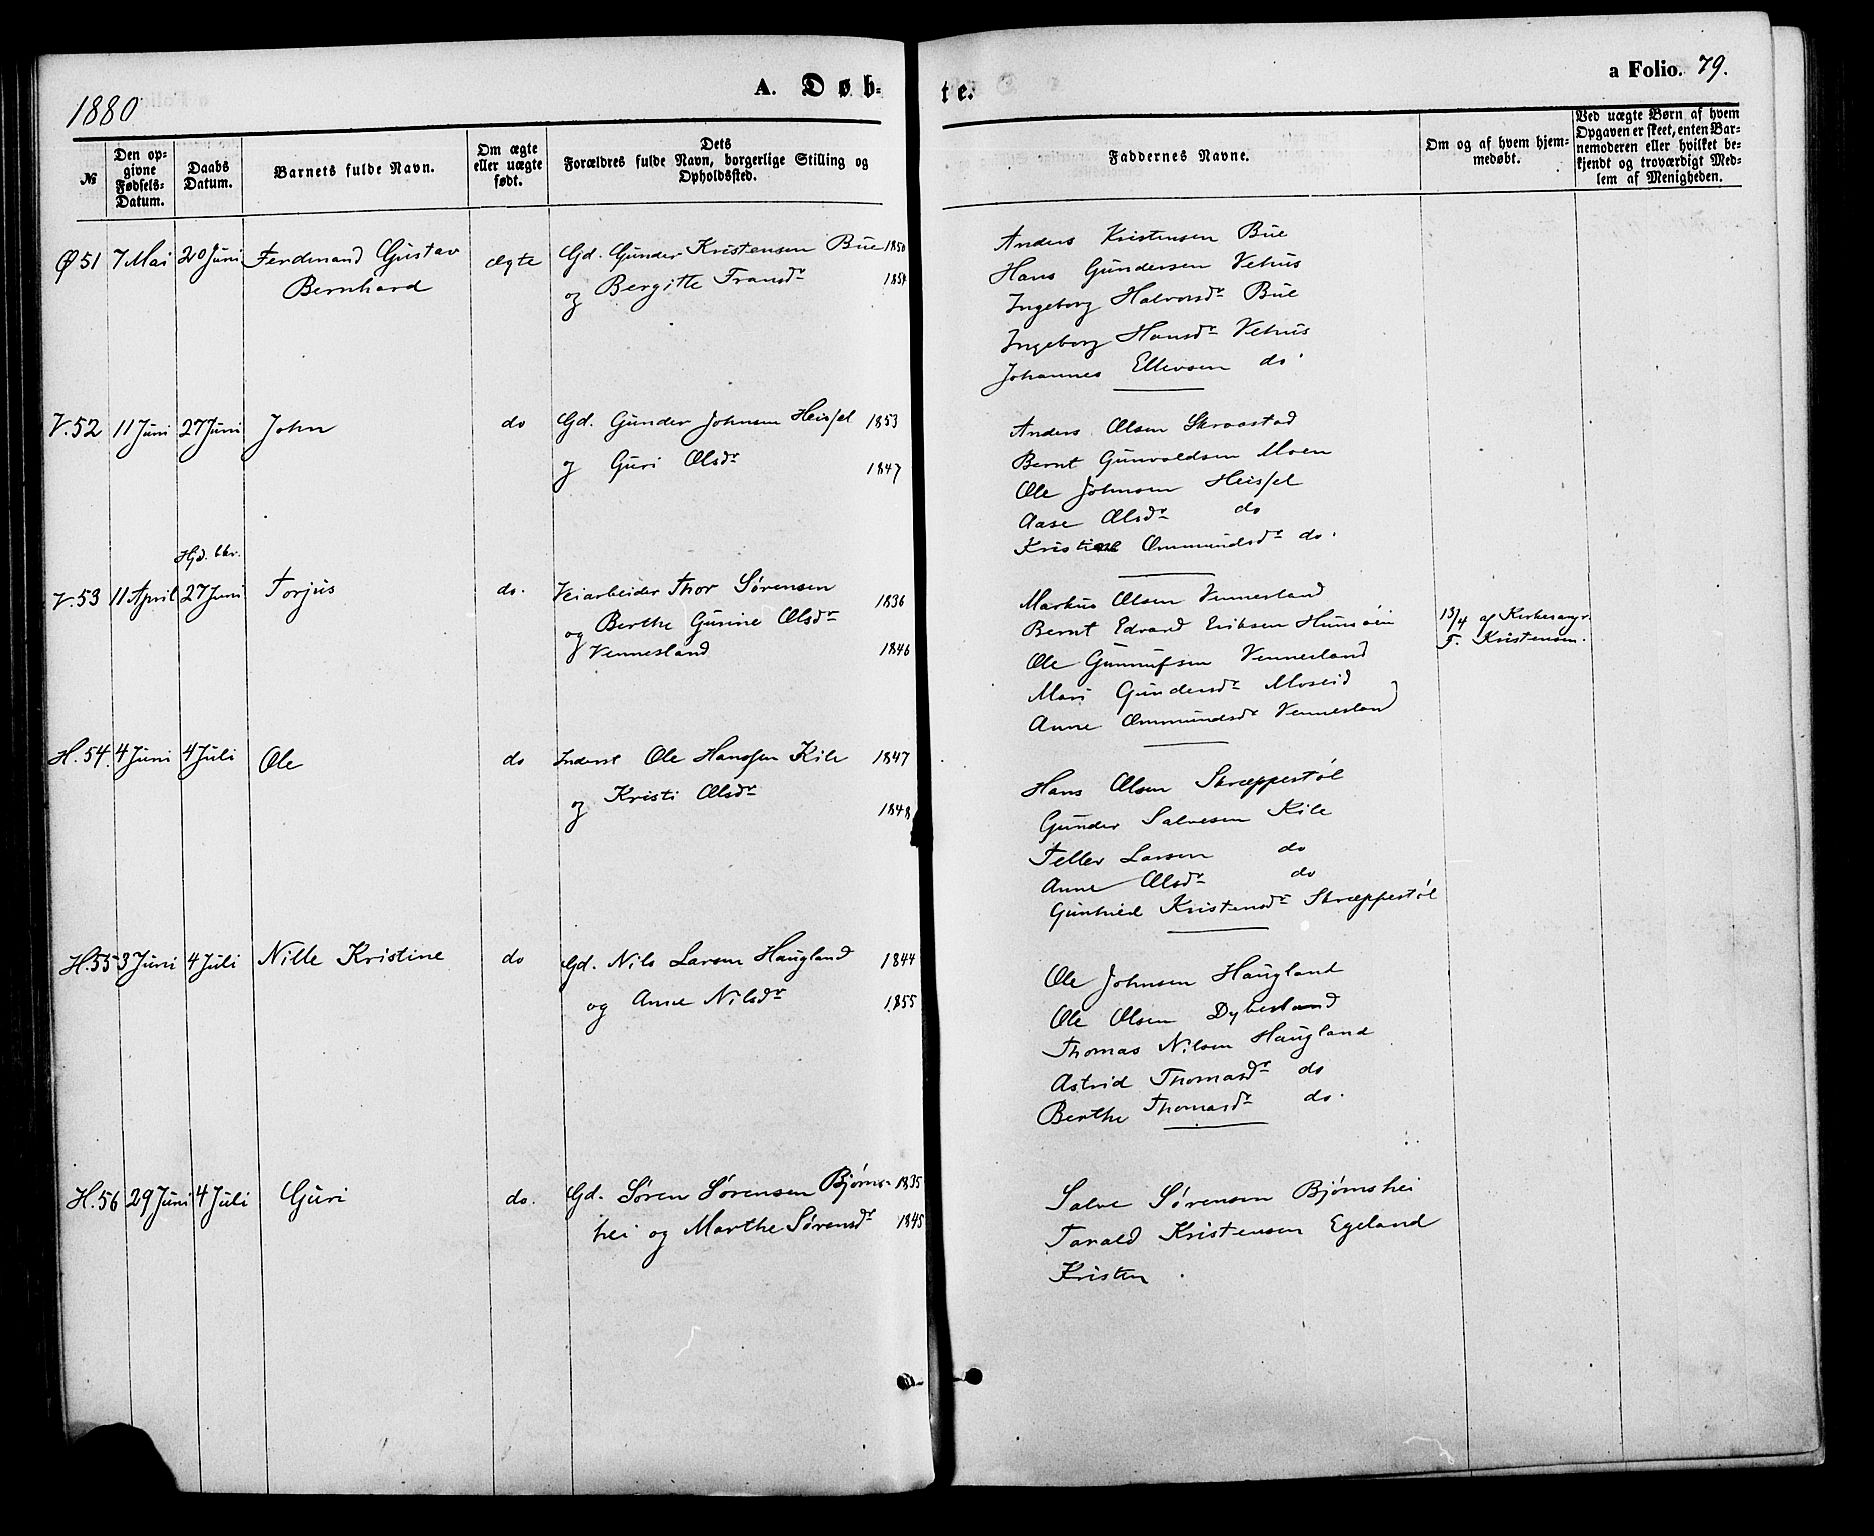 1880
A. Døb-
te.
a Folio. 79.
№
Den op-
givne
Fødsels-
Datum.
Daabs
Datum.
Barnets fulde Navn.
Om ægte
eller uægte
født.
Dets
Forældres fulde Navn, borgerlige Stilling og
Opholdssted.
Faddernes Navne.
Om og af hvem hjem-
medøbt.
Ved uægte Børn af hvem
Opgaven er skeet, enten Bar-
nemoderen eller hvilket be-
kjendt og troværdigt Med-
lem af Menigheden.
Ø 51 7 Mai 20 Juni Ferdinand Gustav ægte Gd. Gunder Kristensen Bue 1850
Bernhard og Bergitte Fransdr 1854
Anders Kristensen Bue
Hans Gundersen Vehus
Ingeborg Halvorsdr Bue
Ingeborg Hansdr Vehus
Johannes Ellevsen do
V. 52 11 Juni 27 Juni John do Gd. Gunder Johnsen Heissel 1853
og Guri Olsdr 1847
Anders Olsen Skraastad
Bernt Gunvaldsen Moen
Ole Johnsen Heissel
Aase Olsdr do
Kristine Ommundsdr do.
V. 53 11 April 27 Juni Torjus do. Veiarbeider Thor Sørensen 1836
og Berthe Gurine Olsdr
Vennesland 1846
Markus Olsen Vennesland
Bernt Edvard Eriksen Hunsøen
Ole Gunnufsen Vennesland
Mari Gundersdr Moseid
Anne Ommundsdr Vennesland
13/4 af Kirkesangr.
T. Kristensen.
H. 54. 4 Juni 4 Juli Ole do Inderst Ole Hanssen Kile 1847
og Kristi Olsdr 1848
Hans Olsen Skræppestøl
Gunder Salvesen Kile
Tellev Larsen do
Anne Olsdr do
Gunhild Kristensdr Skræppestøl
H. 55 3 Juni 4 Juli Nille Kristine do Gd. Nils Larsen Haugland 1844
og Anne Nilsdr 1855
Ole Johnsen Haugland
Ole Olsen Dybesland
Thomas Nilsen Haugland
Astrid Thomasdr do
Berthe Thomasdr do.
H. 56 29 Juni 4 Juli Guri do. Gd. Søren Sørensen Bjørns- 1835
hei og Marthe Sørensdr 1845
Salve Sørensen Bjørnshei
Tarald Kristensen Egeland
Kristen